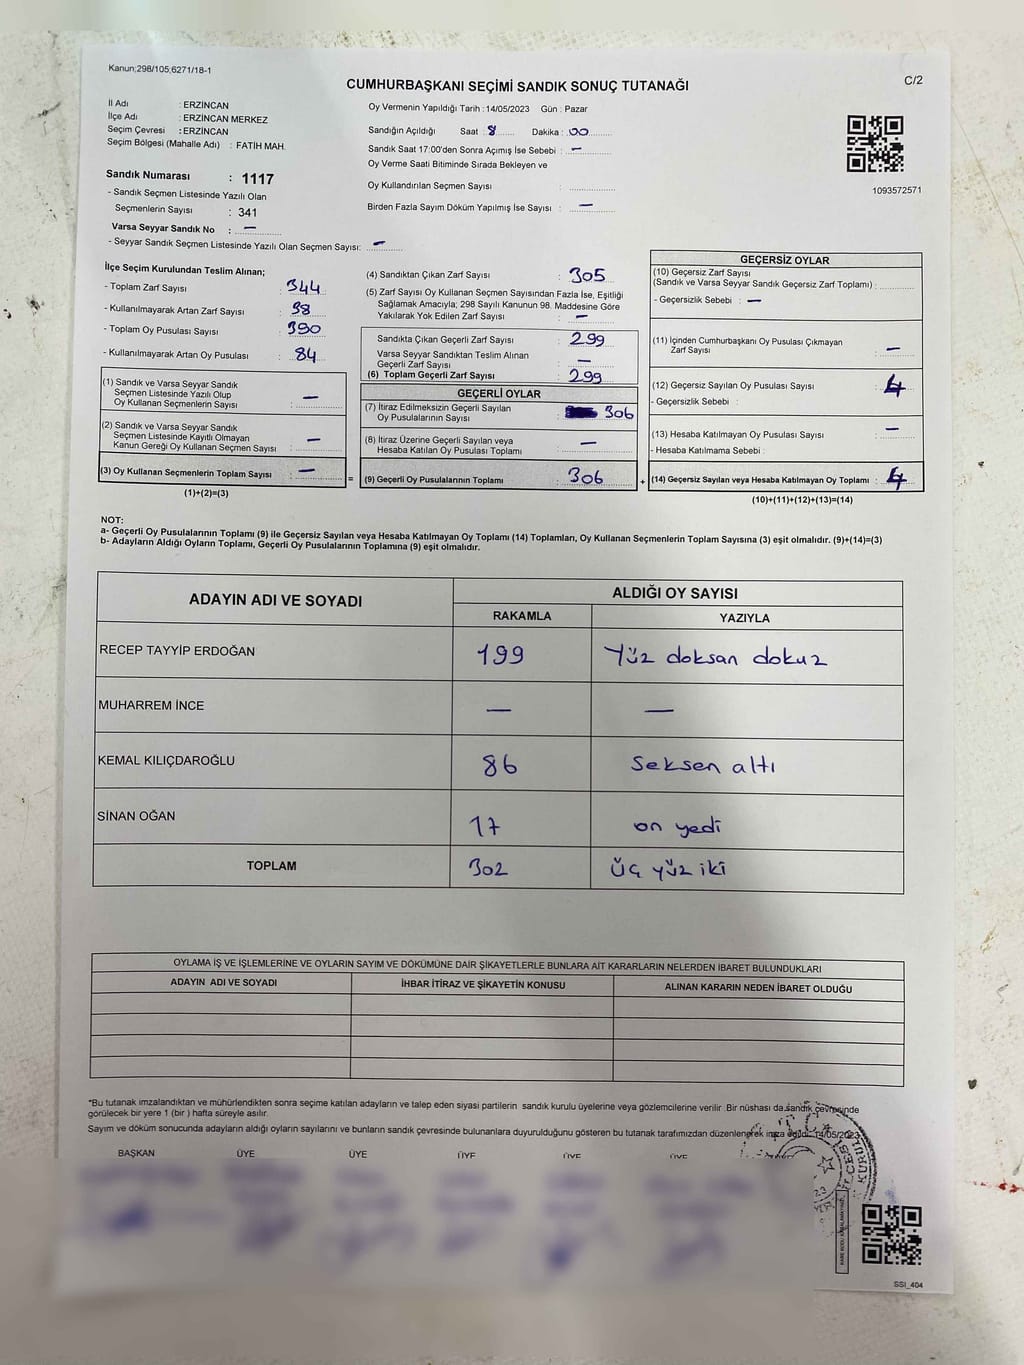 Kanun;298/105;6271/18-1
C/2
CUMHURBAŞKANI SEÇİMİ SANDIK SONUÇ TUTANAĞI
İl Adı : ERZİNCAN
İlçe Adı : ERZİNCAN MERKEZ
Seçim Çevresi : ERZİNCAN
Seçim Bölgesi (Mahalle Adı) : FATİH MAH.
Sandık Numarası : 1117
- Sandık Seçmen Listesinde Yazılı Olan
Seçmenlerin Sayısı : 341
Varsa Seyyar Sandık No : —
- Seyyar Sandık Seçmen Listesinde Yazılı Olan Seçmen Sayısı: —
Oy Vermenin Yapıldığı Tarih : 14/05/2023 Gün : Pazar
Sandığın Açıldığı Saat : 8 Dakika : 00
Sandık Saat 17:00'den Sonra Açımış İse Sebebi : —
Oy Verme Saati Bitiminde Sırada Bekleyen ve
Oy Kullandırılan Seçmen Sayısı :
Birden Fazla Sayım Döküm Yapılmış İse Sayısı : —
1093572571
İlçe Seçim Kurulundan Teslim Alınan;
- Toplam Zarf Sayısı : 344
- Kullanılmayarak Artan Zarf Sayısı : 38
- Toplam Oy Pusulası Sayısı : 390
- Kullanılmayarak Artan Oy Pusulası : 84
(1) Sandık ve Varsa Seyyar Sandık
Seçmen Listesinde Yazılı Olup
Oy Kullanan Seçmenlerin Sayısı : —
(2) Sandık ve Varsa Seyyar Sandık
Seçmen Listesinde Kayıtlı Olmayan
Kanun Gereği Oy Kullanan Seçmen Sayısı : —
(3) Oy Kullanan Seçmenlerin Toplam Sayısı : —
(1)+(2)=(3)
(4) Sandıktan Çıkan Zarf Sayısı : 305
(5) Zarf Sayısı Oy Kullanan Seçmen Sayısından Fazla İse, Eşitliği
Sağlamak Amacıyla; 298 Sayılı Kanunun 98. Maddesine Göre
Yakılarak Yok Edilen Zarf Sayısı : —
Sandıkta Çıkan Geçerli Zarf Sayısı : 299
Varsa Seyyar Sandıktan Teslim Alınan
Geçerli Zarf Sayısı : —
(6) Toplam Geçerli Zarf Sayısı : 299
GEÇERLİ OYLAR
(7) İtiraz Edilmeksizin Geçerli Sayılan
Oy Pusulalarının Sayısı : 306
(8) İtiraz Üzerine Geçerli Sayılan veya
Hesaba Katılan Oy Pusulası Toplamı : —
= (9) Geçerli Oy Pusulalarının Toplamı : 306 +
GEÇERSİZ OYLAR
(10) Geçersiz Zarf Sayısı
(Sandık ve Varsa Seyyar Sandık Geçersiz Zarf Toplamı) :
- Geçersizlik Sebebi : —
(11) İçinden Cumhurbaşkanı Oy Pusulası Çıkmayan
Zarf Sayısı : —
(12) Geçersiz Sayılan Oy Pusulası Sayısı : 4
- Geçersizlik Sebebi :
(13) Hesaba Katılmayan Oy Pusulası Sayısı : —
- Hesaba Katılmama Sebebi :
(14) Geçersiz Sayılan veya Hesaba Katılmayan Oy Toplamı : 4
(10)+(11)+(12)+(13)=(14)
NOT:
a- Geçerli Oy Pusulalarının Toplamı (9) ile Geçersiz Sayılan veya Hesaba Katılmayan Oy Toplamı (14) Toplamları, Oy Kullanan Seçmenlerin Toplam Sayısına (3) eşit olmalıdır. (9)+(14)=(3)
b- Adayların Aldığı Oyların Toplamı, Geçerli Oy Pusulalarının Toplamına (9) eşit olmalıdır.
ADAYIN ADI VE SOYADI ALDIĞI OY SAYISI
RAKAMLA YAZIYLA
RECEP TAYYİP ERDOĞAN 199 Yüz doksan dokuz
MUHARREM İNCE — —
KEMAL KILIÇDAROĞLU 86 Seksen altı
SİNAN OĞAN 17 on yedi
TOPLAM 302 Üç yüz iki
OYLAMA İŞ VE İŞLEMLERİNE VE OYLARIN SAYIM VE DÖKÜMÜNE DAİR ŞİKAYETLERLE BUNLARA AİT KARARLARIN NELERDEN İBARET BULUNDUKLARI
ADAYIN ADI VE SOYADI İHBAR İTİRAZ VE ŞİKAYETİN KONUSU ALINAN KARARIN NEDEN İBARET OLDUĞU
*Bu tutanak imzalandıktan ve mühürlendikten sonra seçime katılan adayların ve talep eden siyasi partilerin sandık kurulu üyelerine veya gözlemcilerine verilir. Bir nüshası da sandık çevresinde
görülecek bir yere 1 (bir ) hafta süreyle asılır.
Sayım ve döküm sonucunda adayların aldığı oyların sayılarını ve bunların sandık çevresinde bulunanlara duyurulduğunu gösteren bu tutanak tarafımızdan düzenlenerek imza edildi. 14/05/2023
BAŞKAN ÜYE ÜYE ÜYE ÜYE ÜYE
SSI_404